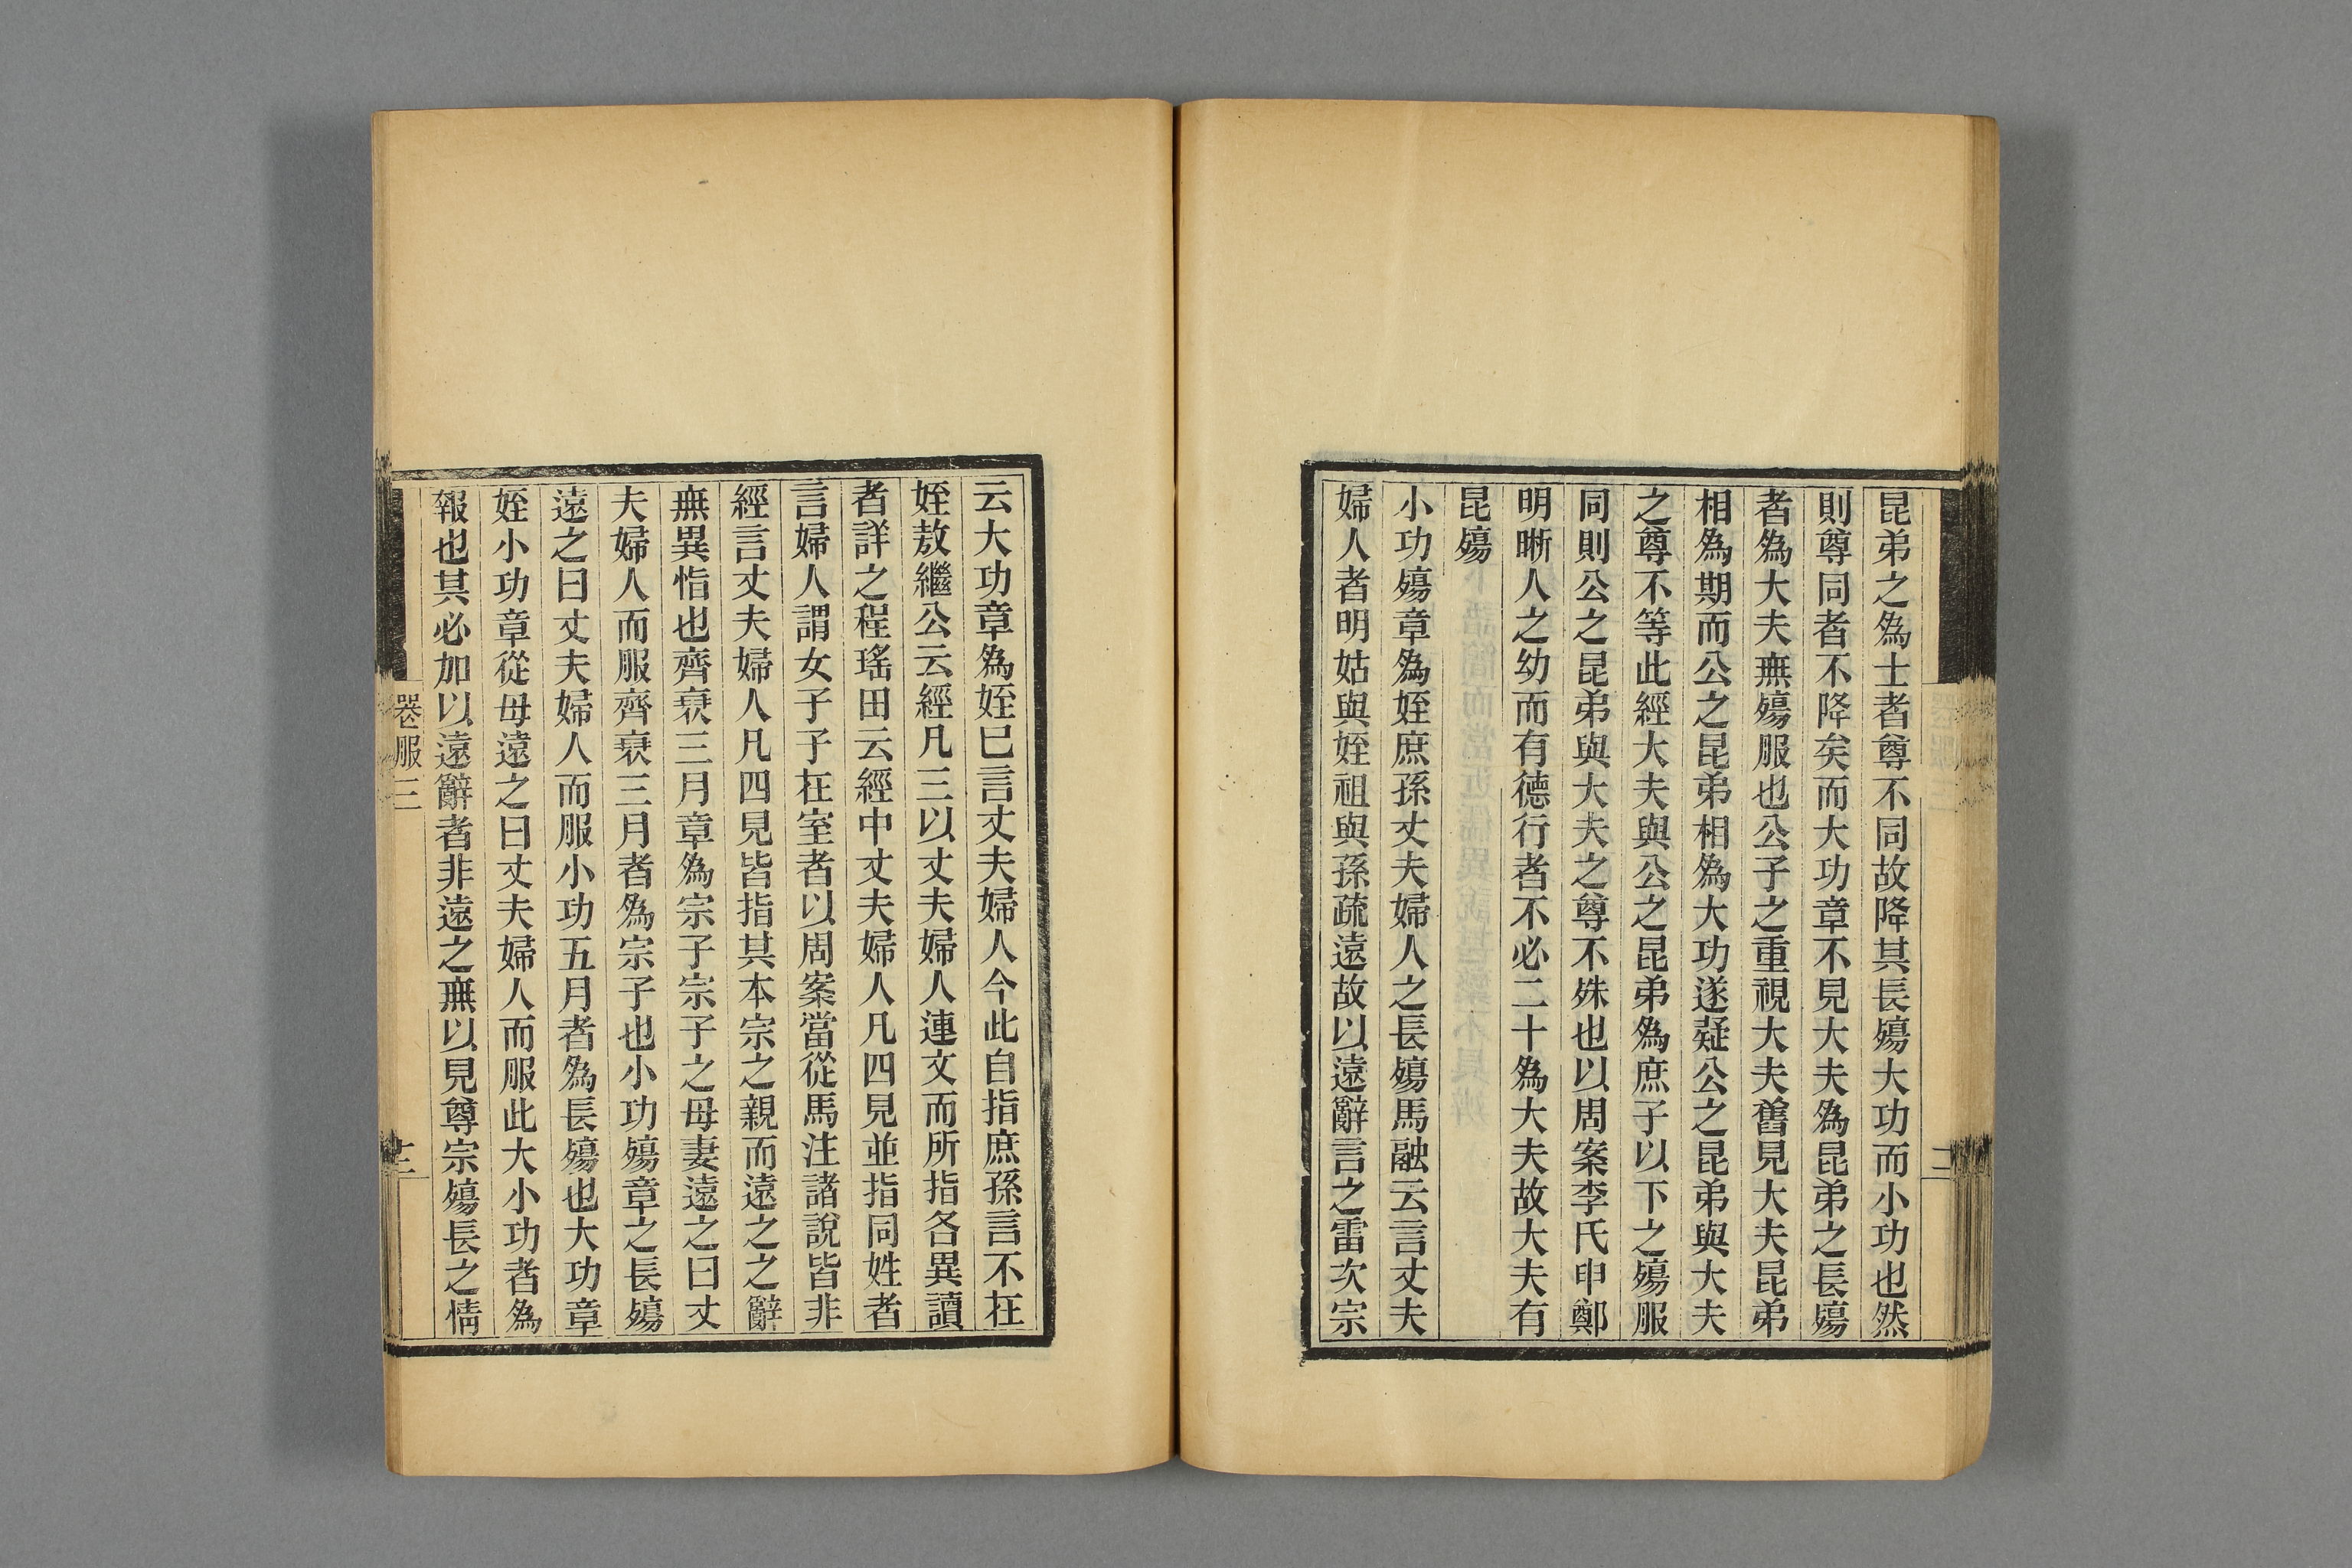 昆弟之為士者尊不同故降其長殤大功而小功也然
則尊同者不降矣而大功章不見大夫為昆弟之長殤
者為大夫無殤服也公子之重視大夫舊見大夫昆弟
相為期而公之昆弟相為大功遂疑公之昆弟與大夫
之尊不等此經大夫與公之昆弟為庶子以下之殤服
同則公之昆弟與大夫之尊不殊也以周案李氏申鄭
明晰人之幼而有德行者不必二十為大夫故大夫有
昆殤
小功殤章為姪庶孫丈夫婦人之長殤馬融云言丈夫
婦人者明姑與姪祖與孫疏遠故以遠辭言之雷次宗
云大功章為姪已言丈夫婦人今此自指庶孫言不在
姪敖繼公云經凡三以丈夫婦人連文而所指各異讀
者詳之程瑤田云經中丈夫婦人凡四見並指同姓者
言婦人謂女子子在室者以周案當從馬注諸說皆非
經言丈夫婦人凡四見皆指其本宗之親而遠之之辭
無異恉也齊衰三月章為宗子宗子之母妻遠之曰丈
夫婦人而服齊衰三月者為宗子也小功殤章之長殤
遠之曰丈夫婦人而服小功五月者為長殤也大功章
姪小功章從母遠之曰丈夫婦人而服此大小功者為
報也其必加以遠辭者非遠之無以見尊宗殤長之情
喪服三
十三